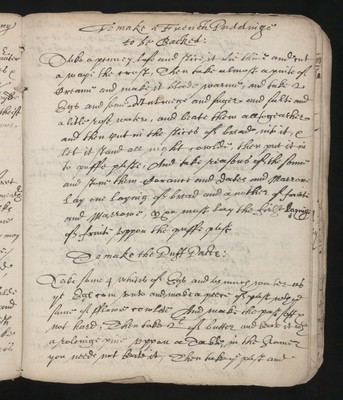 To make a French Puddinge
to be Baked:
Take a penny lofe and slice it in thine and cut
away the crust, Then take almost a pinte of
Creame and make it bloode warme, and take 2
Eggs and som Nutmege and suger and salte and
a litle rose water, and beate them altogeather
and then put in the slices of bread into it, &
let it stand all night coulde, then put it in
to puffe paste, And take reasons of the sunne
and stone them Corance and dates and Marrow
Lay one laying of bread and another of fruite
and Marrowe, & you must lay the first laying
of fruite uppon the puffe past
To make the Puff Paste:
Take some 4 whites of Eggs and as much water as
ye Eggs com unto and make a peece of past
some of flower coulde And make the past soft
not hard, Then take of butter and beat it
a rolinge pine uppon a Table, in the
you need not beate it, Then take past and